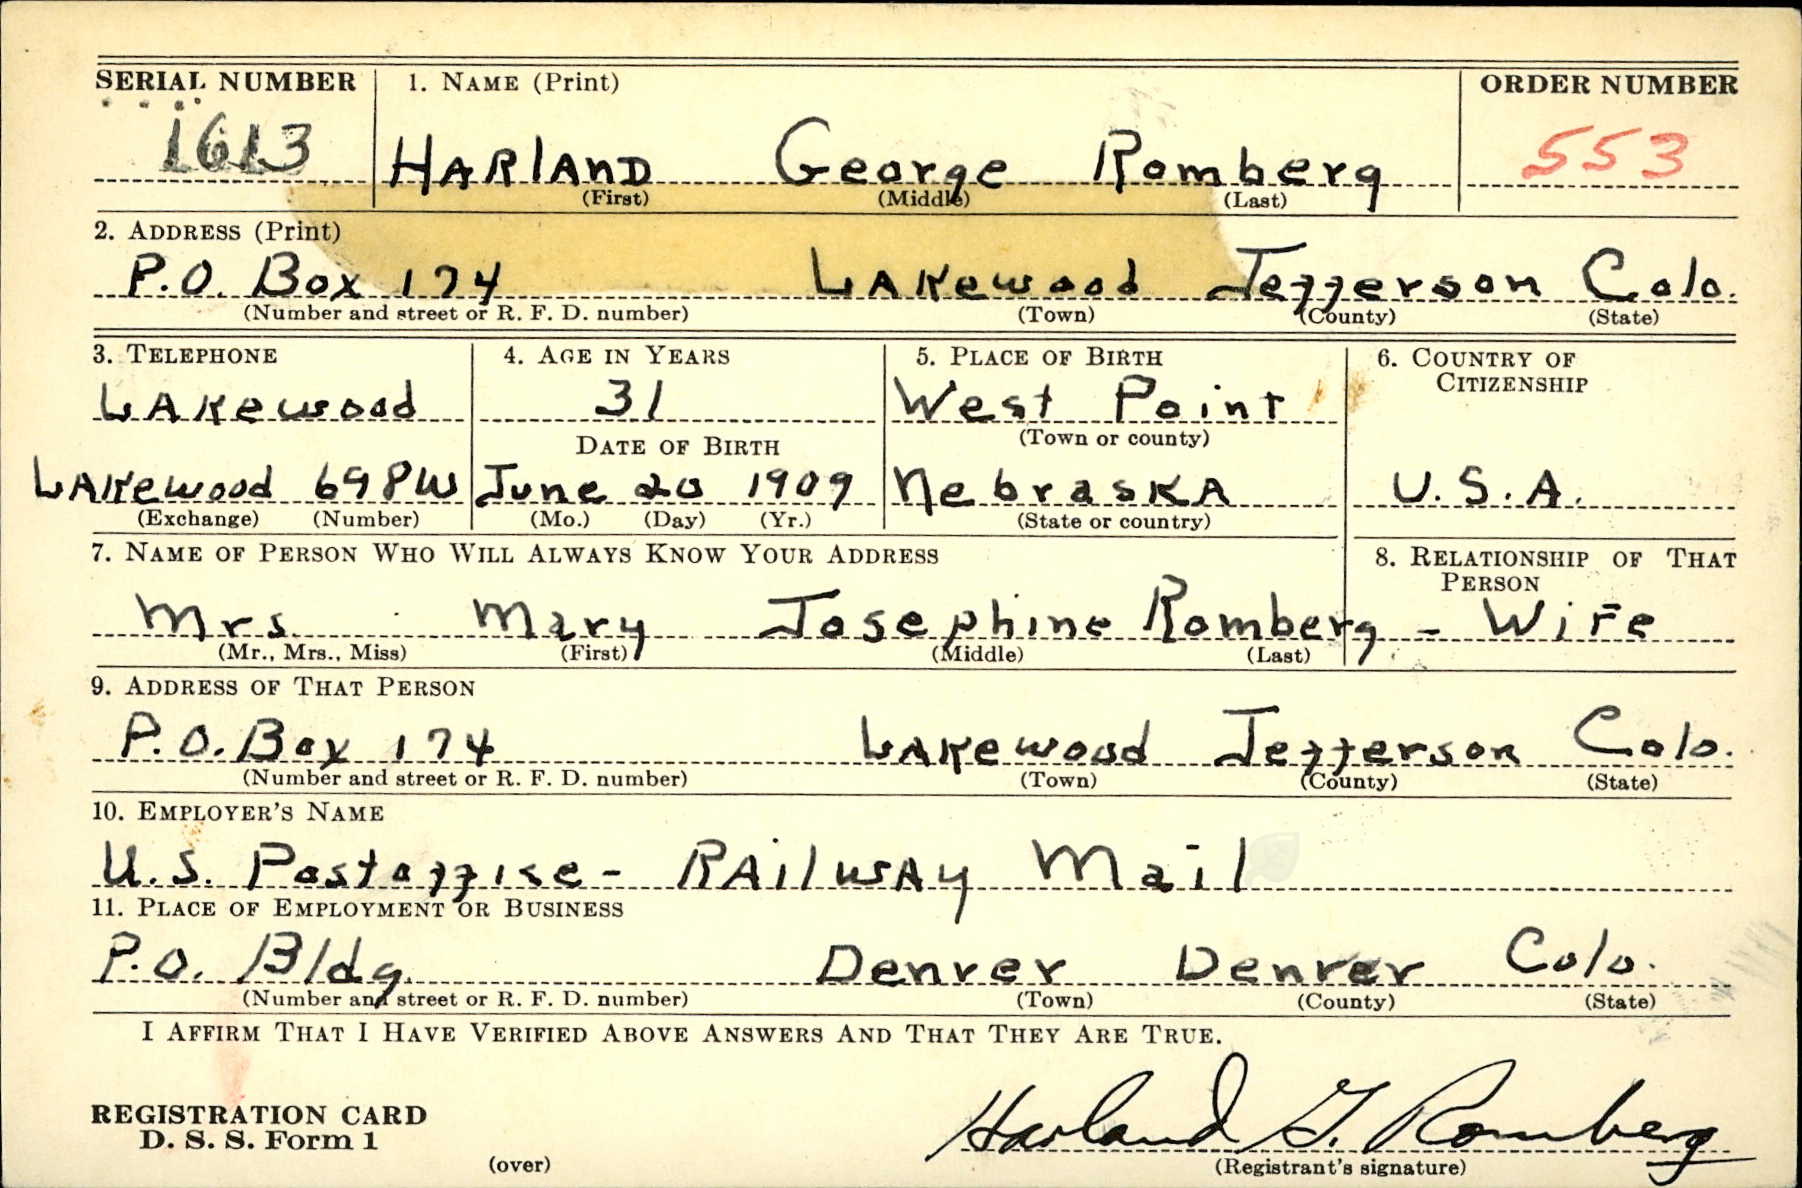 SERIAL NUMBER 1. NAME (Print) ORDER NUMBER
1613 HARLAND George Romberg 553
(First) (Middle) (Last)
2. ADDRESS (Print)
P.O. Box 174 LAKewood Jefferson Colo.
(Number and street or R. F. D. number) (Town) (County) (State)
3. TELEPHONE 4. AGE IN YEARS 5. PLACE OF BIRTH 6. COUNTRY OF CITIZENSHIP
LAKewood 31 West Point
DATE OF BIRTH (Town or county)
LAKewood 698W June 20 1909 NebrasKA U.S.A.
(Exchange) (Number) (Mo.) (Day) (Yr.) (State or country)
7. NAME OF PERSON WHO WILL ALWAYS KNOW YOUR ADDRESS 8. RELATIONSHIP OF THAT PERSON
Mrs Mary Josephine Romberg - WiFe
(Mr., Mrs., Miss) (First) (Middle) (Last)
9. ADDRESS OF THAT PERSON
P.O. Box 174 LAKewood Jefferson Colo.
(Number and street or R. F. D. number) (Town) (County) (State)
10. EMPLOYER'S NAME
U.S. Postoffice - RAilwAy Mail
11. PLACE OF EMPLOYMENT OR BUSINESS
P.O. Bldg. Denver Denver Colo.
(Number and street or R. F. D. number) (Town) (County) (State)
I AFFIRM THAT I HAVE VERIFIED ABOVE ANSWERS AND THAT THEY ARE TRUE.
REGISTRATION CARD
D. S. S. Form 1 Harland G. Romberg
(over) (Registrant's signature)